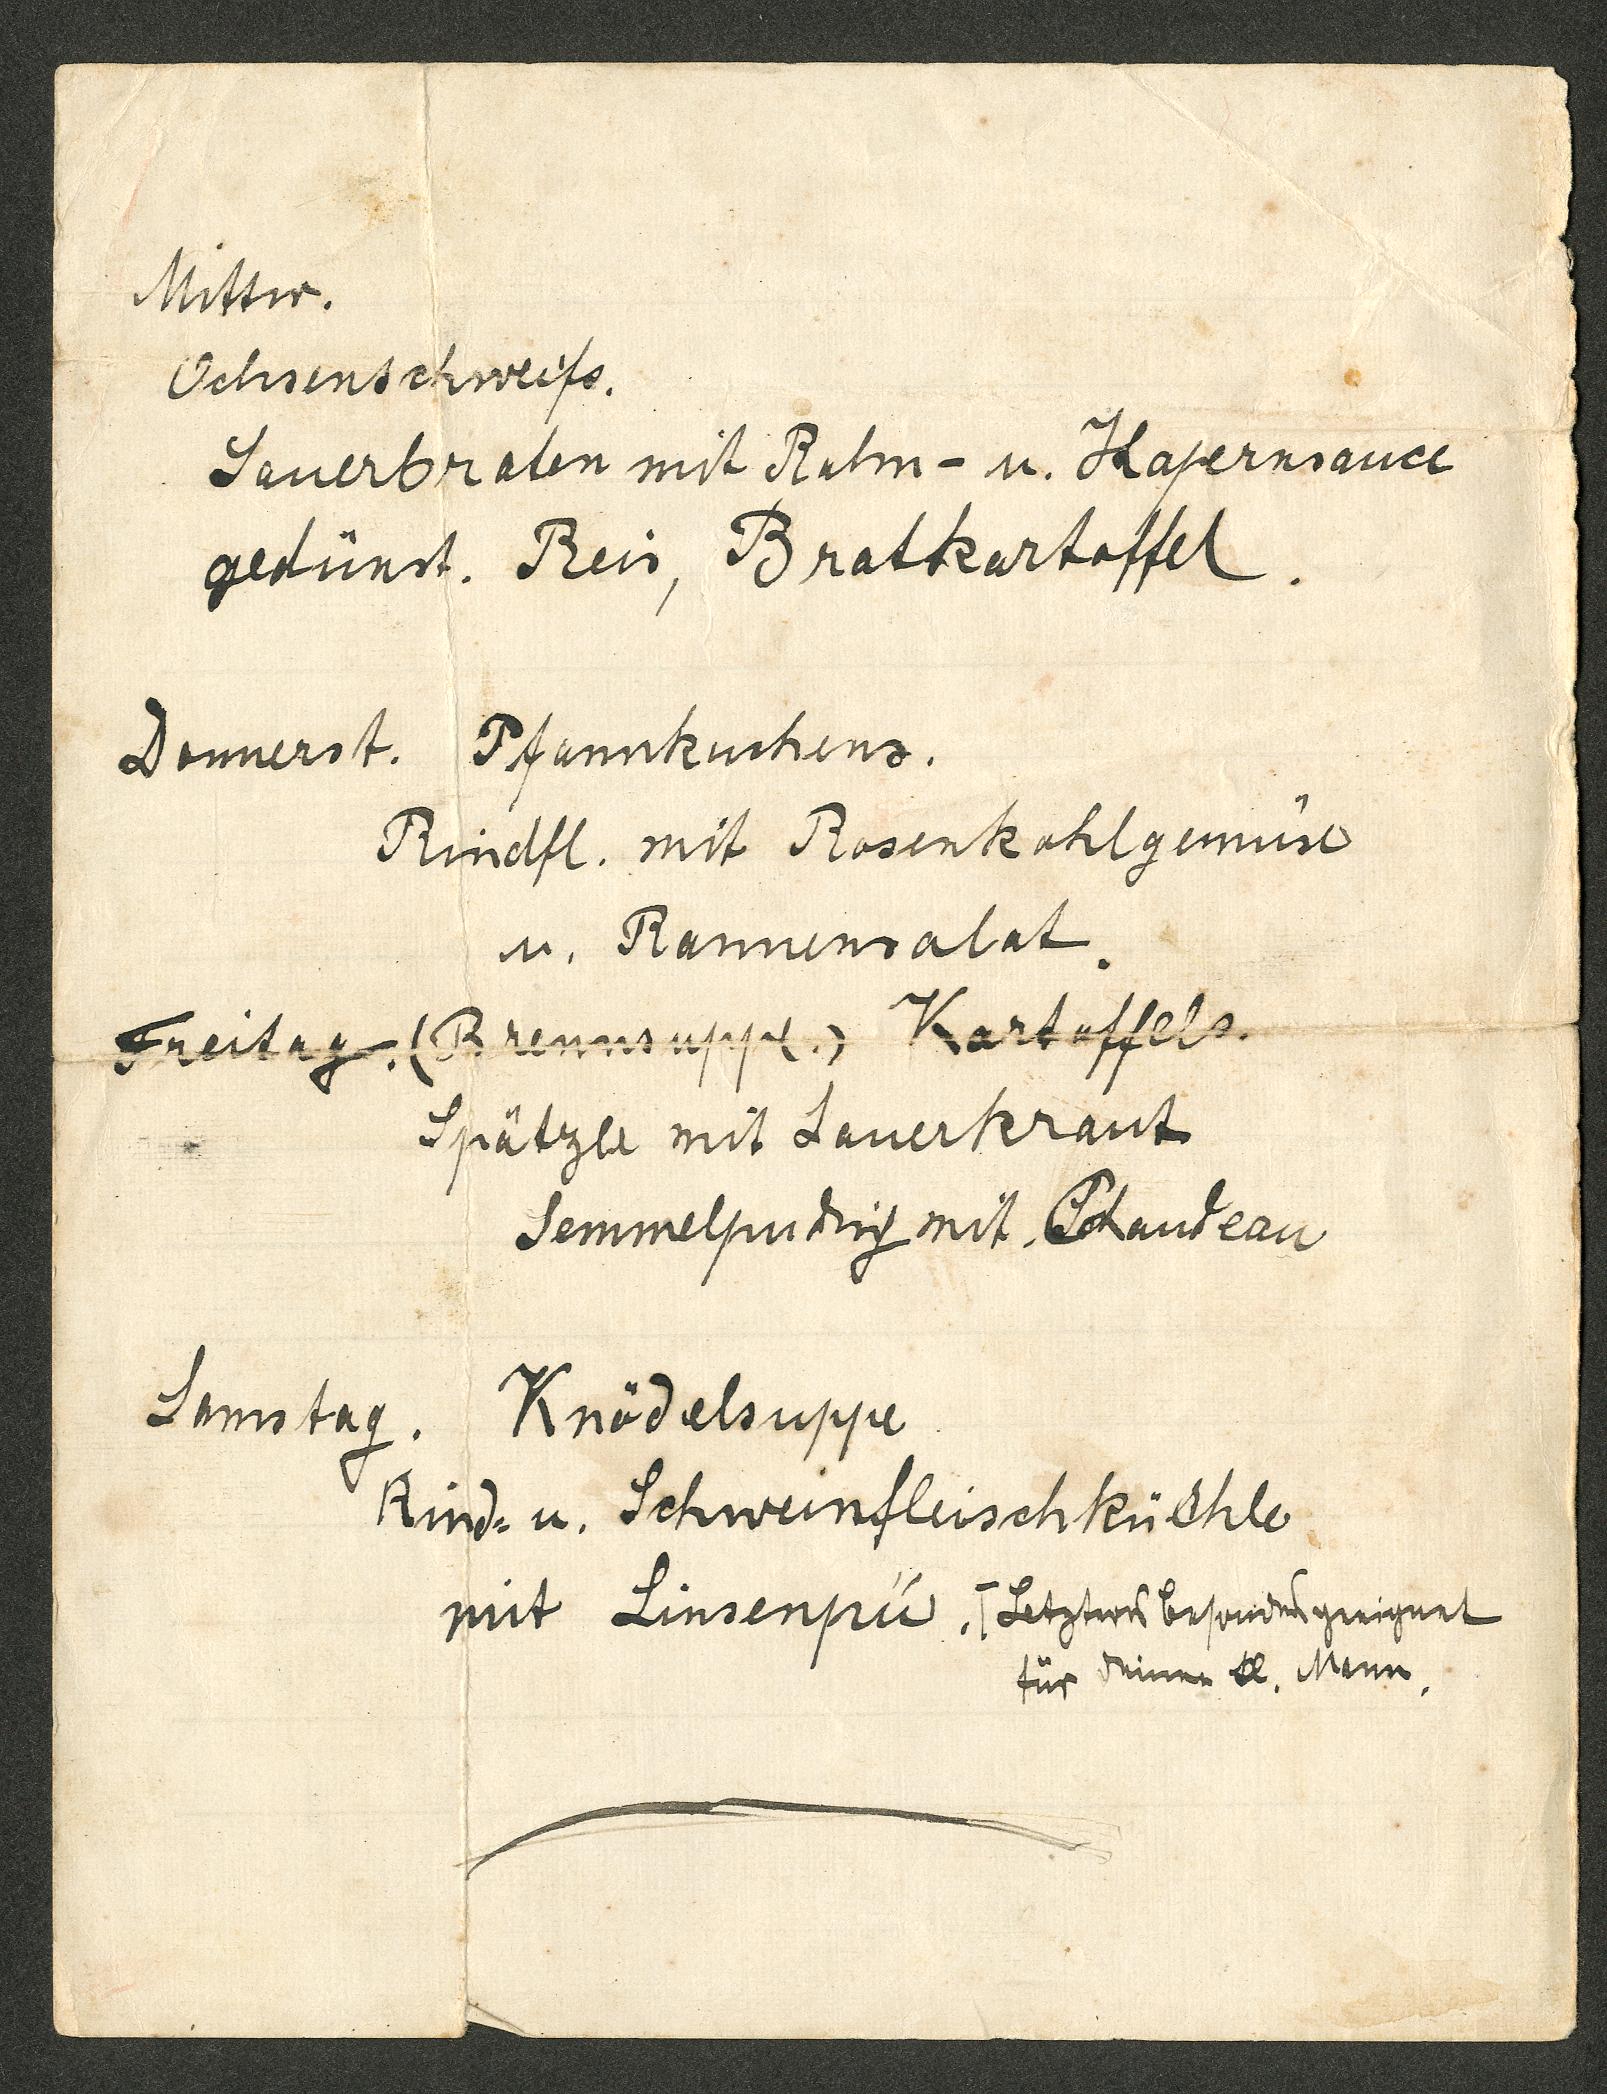 Mittw.
Ochsenschweifs.
Sauerbraten mit Rahm- u. Kapernsauce
gedünst. Reis, Bratkartoffel.
Donnerst. Pfannkuchens.
Rindfl. mit Rosenkohlgemüse
u. Rannensalat.
Freitag. (Brennsuppe.) Kartoffels.
Spätzle mit Sauerkraut
Semmelpudnig mit Chaudeau
Samstag. Knödelsuppe
Rind- u. Schweinfleischküchle
mit Linsenpü. Letzteres besonders geeignet
für kl. Mann.